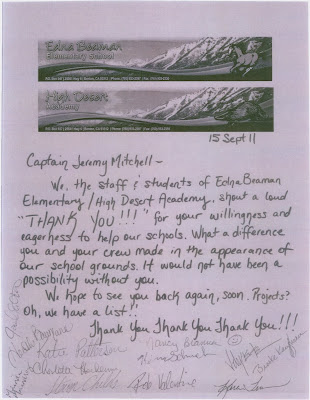 Edna Beaman
Elementary School
High Desert
Academy
15 Sept 11
Captain Jeremy Mitchell -
We, the staff & students of Edna Beaman
Elementary / High Desert Academy, shout a loud
"THANK YOU!!!" for your willingness and
eagerness to help our schools. What a difference
you and your crew made in the appearance of
our school grounds. It would not have been a
possibility without you.
We hope to see you back again, soon. Projects?
Oh, we have a list!!
Thank You Thank You Thank You !!!
Nancy Beaman
Katie Patterson
Rob Valentine